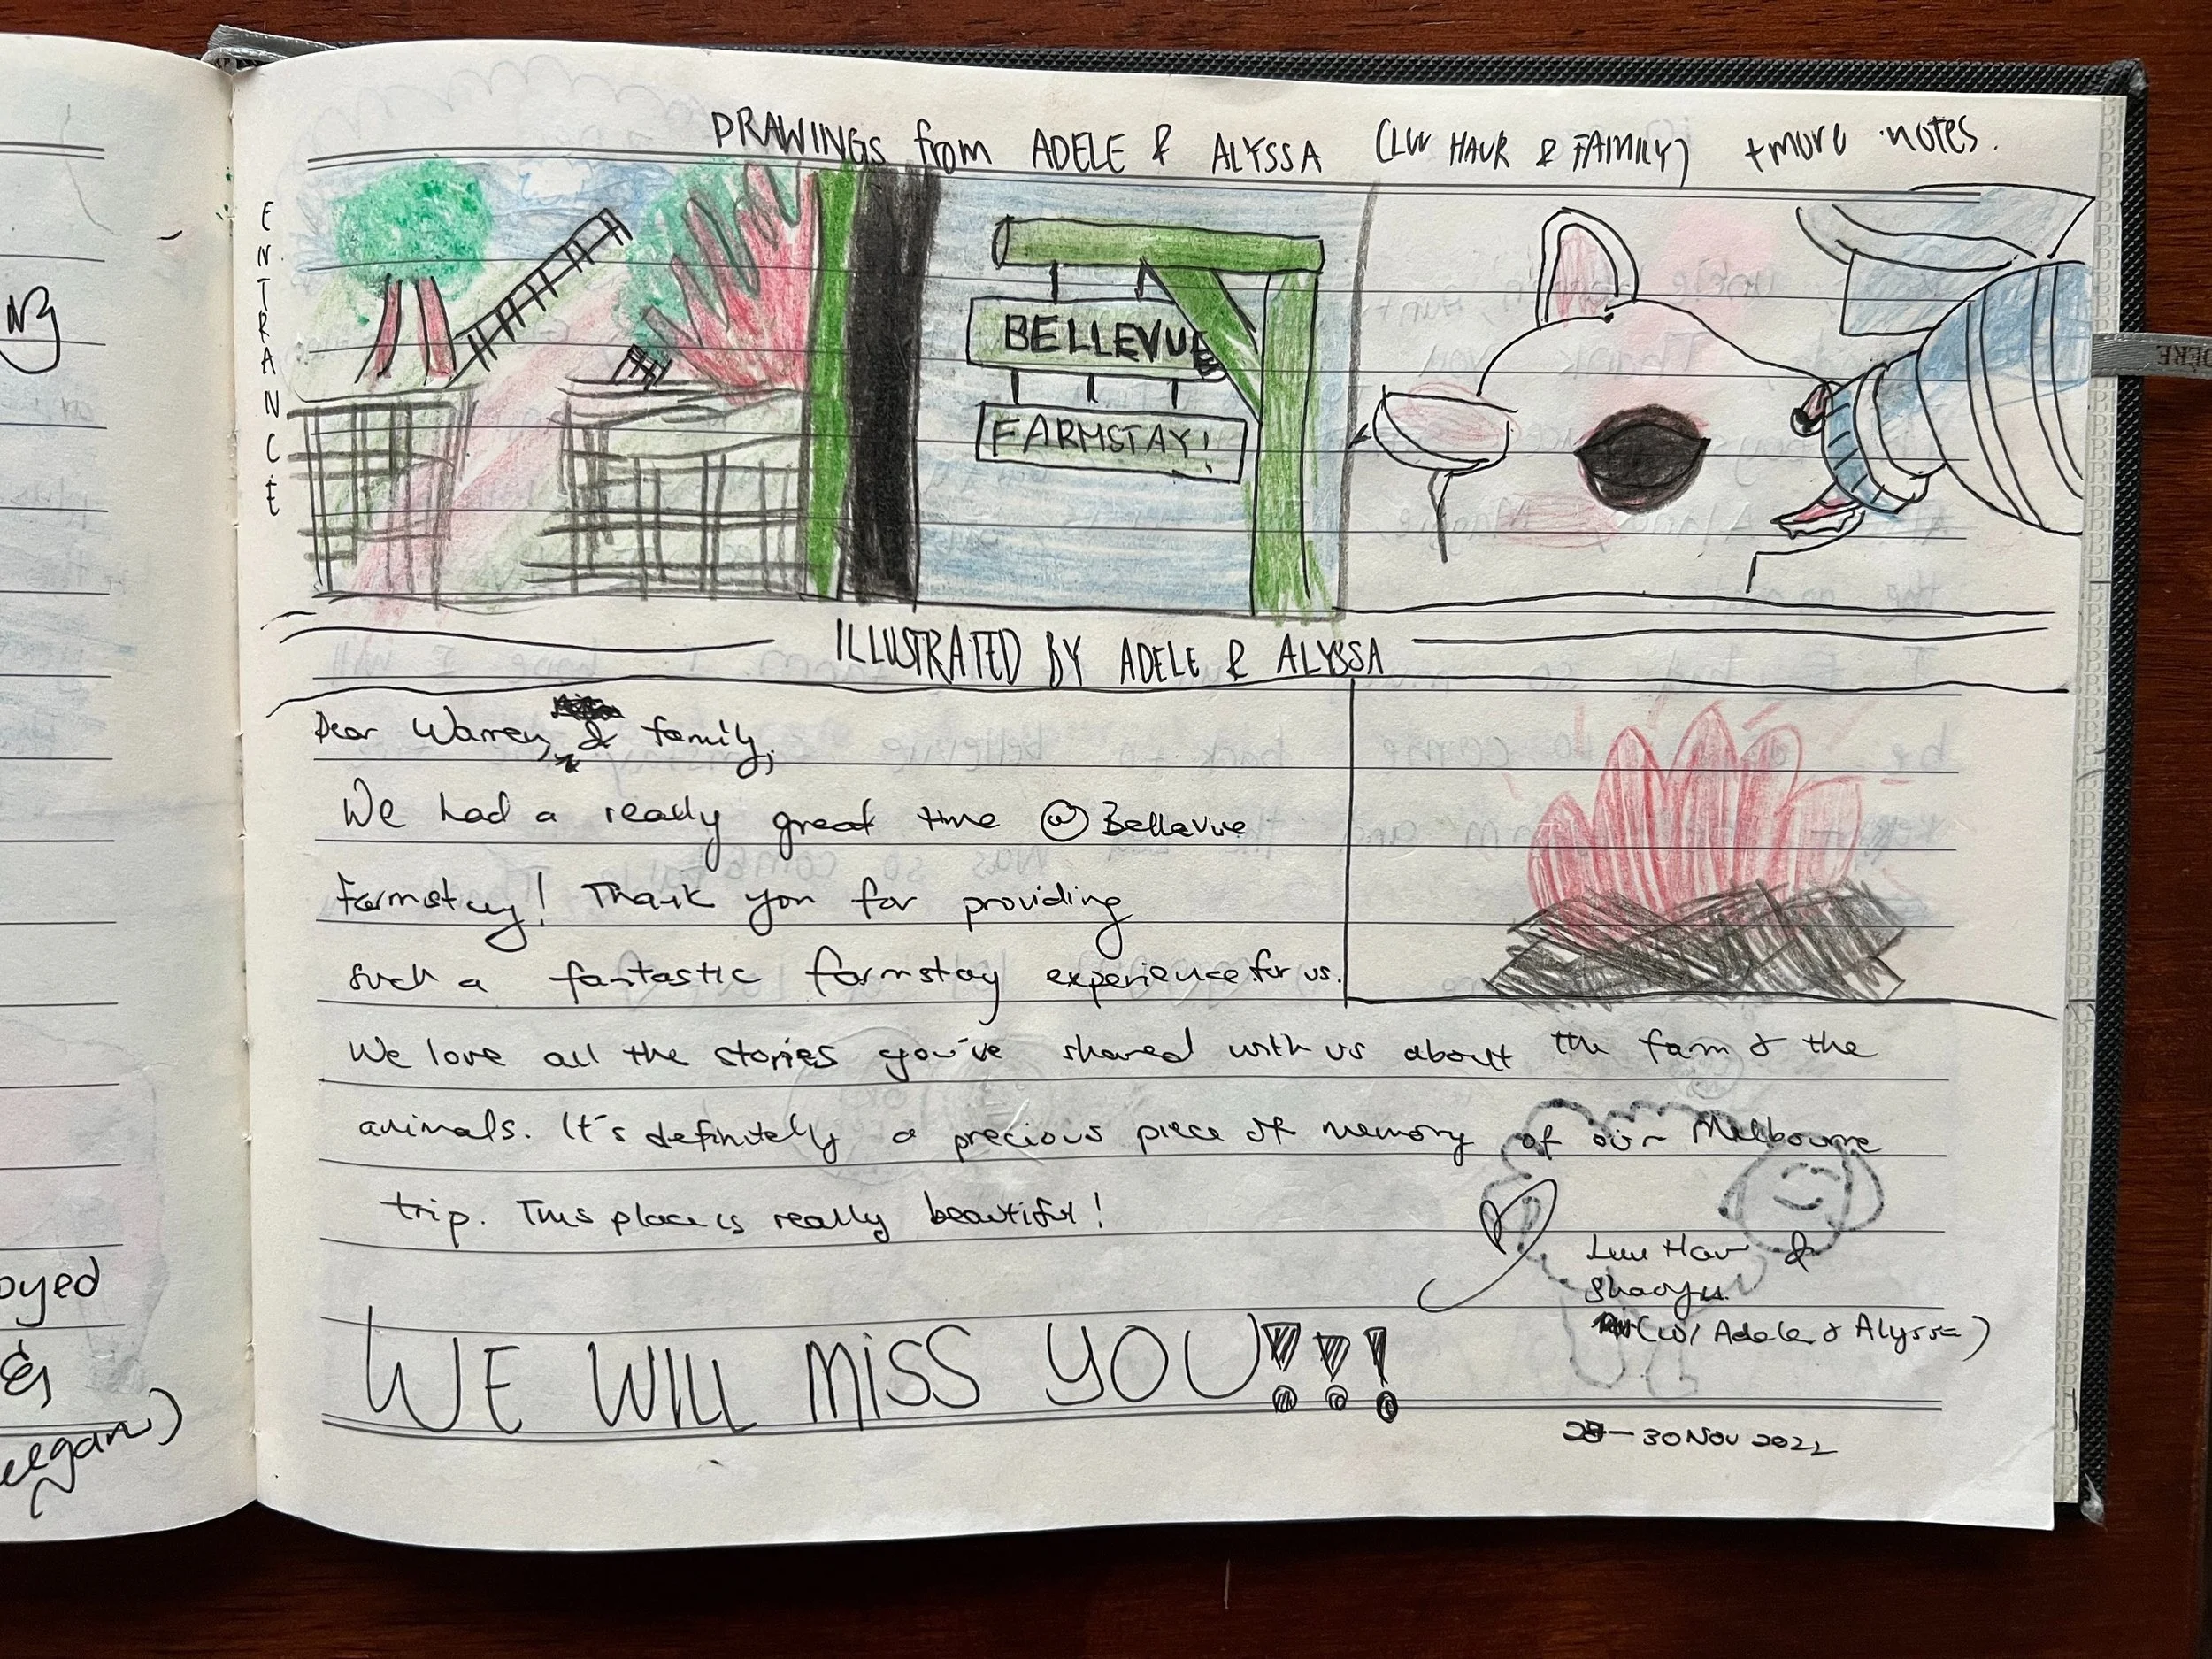 DRAWINGS from ADELE & ALYSSA (LUU HAUR & FAMILY) + more notes.
ENTRANCE
BELLEVUE
FARMSTAY!
ILLUSTRATED BY ADELE & ALYSSA
Dear Warren, & family,
We had a really great time @ Bellevue
Farmstay! Thank you for providing
such a fantastic farmstay experience for us.
We love all the stories you've shared with us about the farm & the
animals. It's definitely a precious piece of memory of our Melbourne
trip. This place is really beautiful!
Luu Haur &
Shaoyu
(w/ Adele & Alyssa)
WE WILL MISS YOU!!!
30 NOV 2022
oyed
&